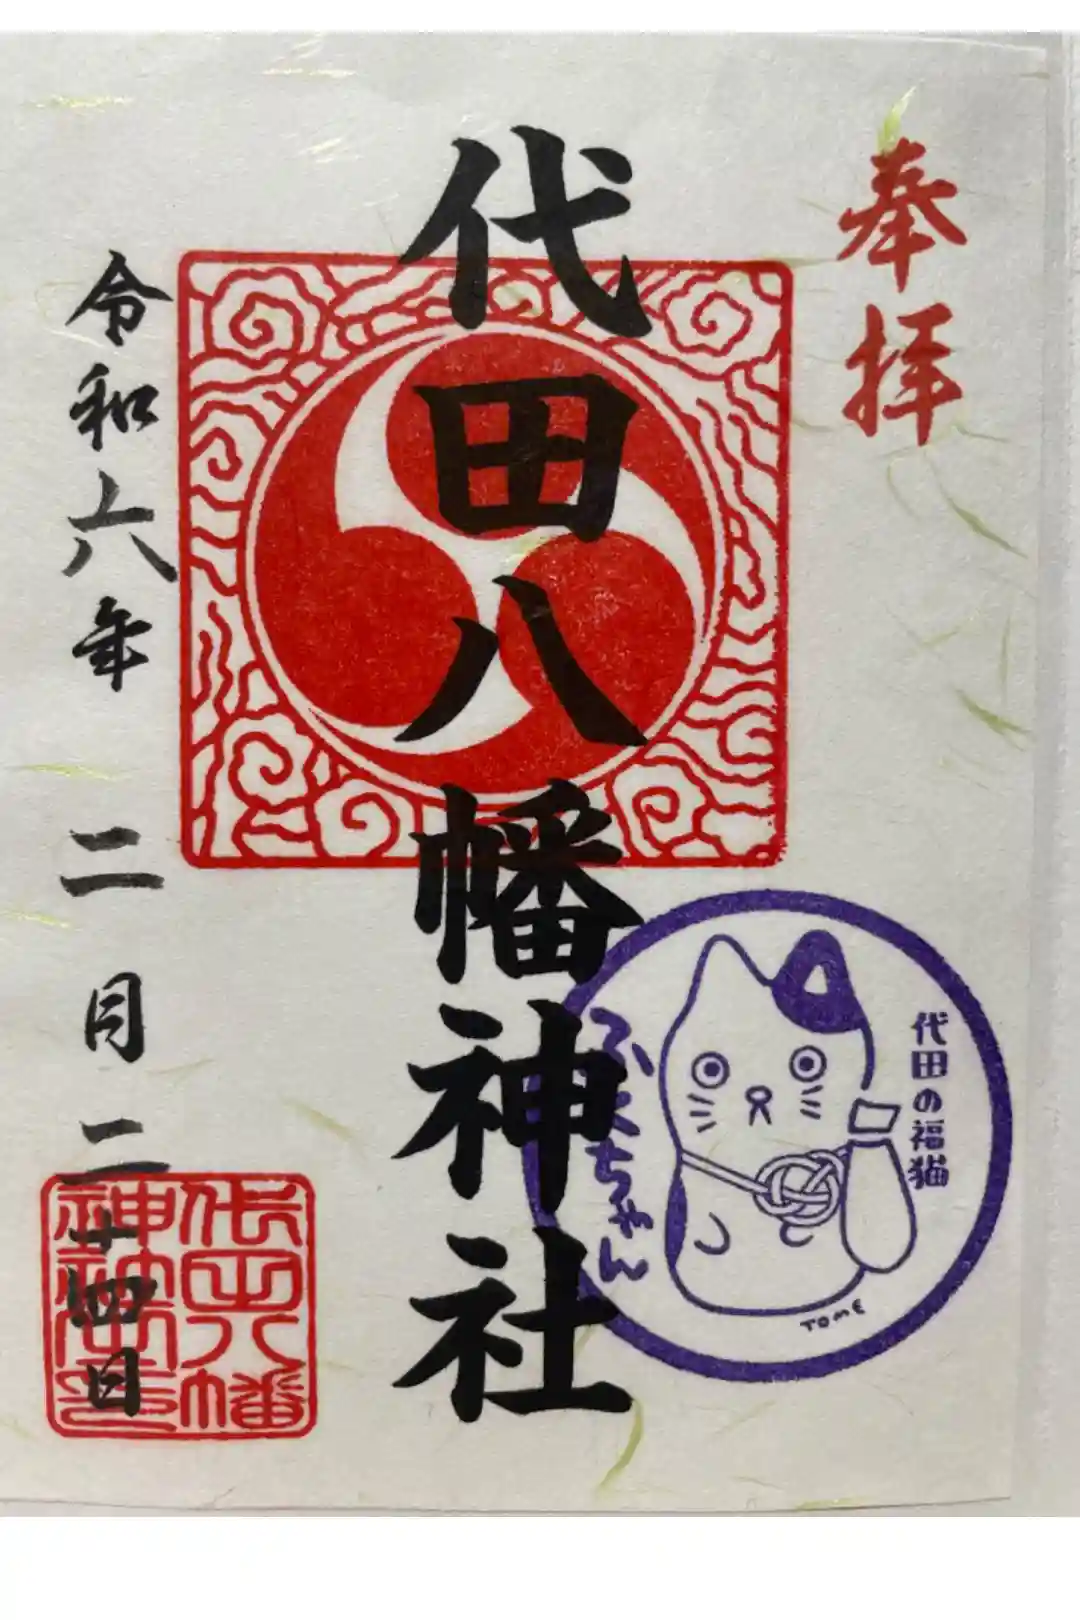 奉拝
代田八幡神社
令和六年 二月二十四日
代田の福猫
ふくちゃん
TOME
代田八幡
神社